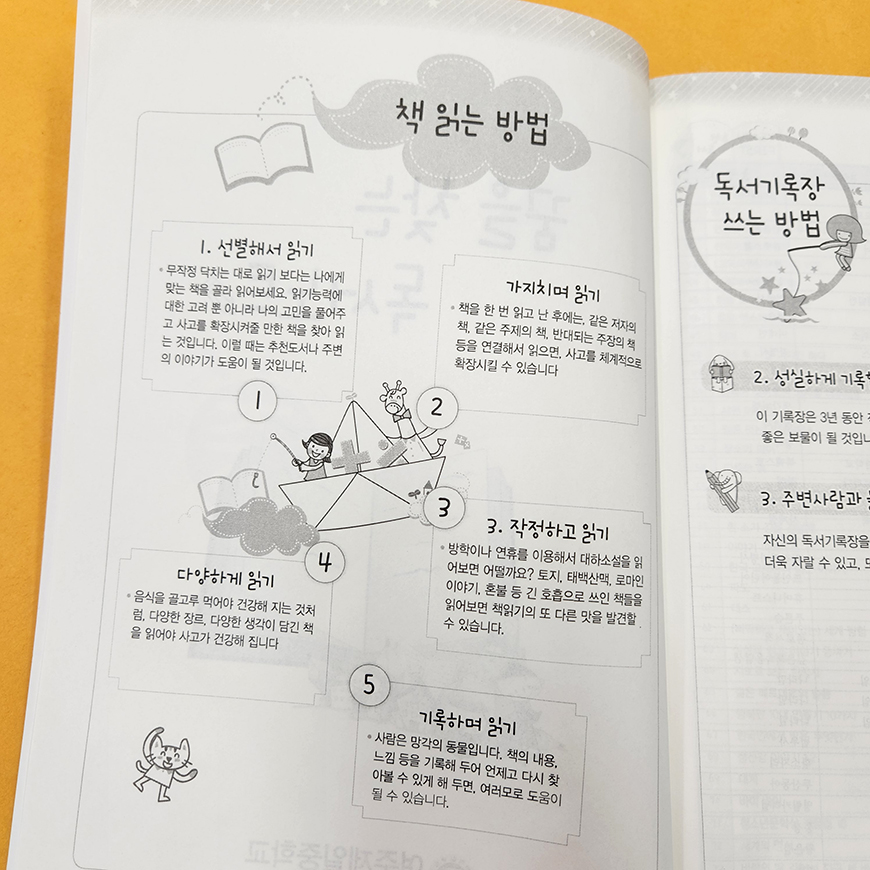 책 읽는 방법
1. 선별해서 읽기
• 무작정 닥치는 대로 읽기 보다는 나에게
맞는 책을 골라 읽어보세요. 읽기능력에
대한 고려 뿐 아니라 나의 고민을 풀어주
고 사고를 확장시켜줄 만한 책을 찾아 읽
는 것입니다. 이럴 때는 추천도서나 주변
의 이야기가 도움이 될 것입니다.
1
가지치며 읽기
• 책을 한 번 읽고 난 후에는, 같은 저자의
책, 같은 주제의 책, 반대되는 주장의 책
등을 연결해서 읽으면, 사고를 체계적으로
확장시킬 수 있습니다
2
3
3. 작정하고 읽기
• 방학이나 연휴를 이용해서 대하소설을 읽
어보면 어떨까요? 토지, 태백산맥, 로마인
이야기, 혼불 등 긴 호흡으로 쓰인 책들을
읽어보면 책읽기의 또 다른 맛을 발견할
수 있습니다.
4
다양하게 읽기
• 음식을 골고루 먹어야 건강해 지는 것처
럼, 다양한 장르, 다양한 생각이 담긴 책
을 읽어야 사고가 건강해 집니다
5
기록하며 읽기
• 사람은 망각의 동물입니다. 책의 내용,
느낌 등을 기록해 두어 언제고 다시 찾
아볼 수 있게 해 두면, 여러모로 도움이
될 수 있습니다.
독서기록장
쓰는 방법
2. 성실하게 기록
이 기록장은 3년 동안
좋은 보물이 될 것입니
3. 주변사람과
자신의 독서기록장을
더욱 자랄 수 있고,